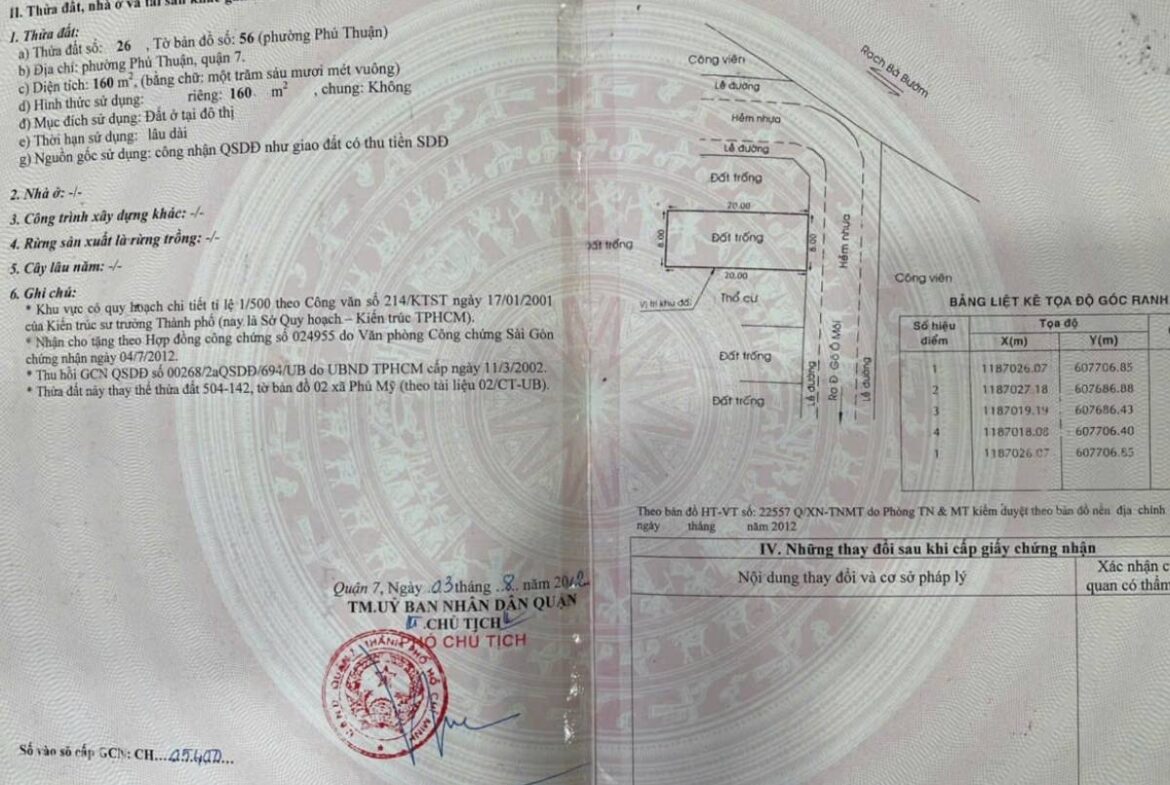 II. Thửa đất, nhà ở và tài sản khác
1. Thửa đất:
a) Thửa đất số: 26 , Tờ bản đồ số: 56 (phường Phú Thuận)
b) Địa chỉ: phường Phú Thuận, quận 7.
c) Diện tích: 160 m², (bằng chữ: một trăm sáu mươi mét vuông)
d) Hình thức sử dụng: riêng: 160 m² , chung: Không
đ) Mục đích sử dụng: Đất ở tại đô thị
e) Thời hạn sử dụng: lâu dài
g) Nguồn gốc sử dụng: công nhận QSDĐ như giao đất có thu tiền SDĐ
2. Nhà ở: -/-
3. Công trình xây dựng khác: -/-
4. Rừng sản xuất là rừng trồng: -/-
5. Cây lâu năm: -/-
6. Ghi chú:
* Khu vực có quy hoạch chi tiết tỉ lệ 1/500 theo Công văn số 214/KTST ngày 17/01/2001
của Kiến trúc sư trưởng Thành phố (nay là Sở Quy hoạch – Kiến trúc TPHCM).
* Nhận cho tặng theo Hợp đồng công chứng số 024955 do Văn phòng Công chứng Sài Gòn
chứng nhận ngày 04/7/2012.
* Thu hồi GCN QSDĐ số 00268/2aQSDĐ/694/UB do UBND TPHCM cấp ngày 11/3/2002.
* Thửa đất này thay thế thửa đất 504-142, tờ bản đồ 02 xã Phú Mỹ (theo tài liệu 02/CT-UB).
Quận 7, Ngày 03 tháng 8 năm 2012
TM.UỶ BAN NHÂN DÂN QUẬN
KT.CHỦ TỊCH
PHÓ CHỦ TỊCH
U.B.N.D QUẬN 7 THÀNH PHỐ HỒ CHÍ MINH
Số vào sổ cấp GCN: CH...05400...
Công viên
Rạch Bà Bướm
Lề đường
Hẻm nhựa
Lề đường
Đất trống
20.00
8.00
Đất trống
8.00
Đất trống
20.00
Hẻm nhựa
Vị trí khu đất
Thổ cư
Công viên
Đất trống
Đất trống
Lề đường
Ra Đ Gò Ô Môi
Lề đường
BẢNG LIỆT KÊ TỌA ĐỘ GÓC RANH
Số hiệu điểm Tọa độ
X(m) Y(m)
1 1187026.07 607706.85
2 1187027.18 607686.88
3 1187019.19 607686.43
4 1187018.08 607706.40
1 1187026.07 607706.85
Theo bản đồ HT-VT số: 22557 Q/XN-TNMT do Phòng TN & MT kiểm duyệt theo bản đồ nền địa chính
ngày tháng năm 2012
IV. Những thay đổi sau khi cấp giấy chứng nhận
Nội dung thay đổi và cơ sở pháp lý
Xác nhận c
quan có thẩm